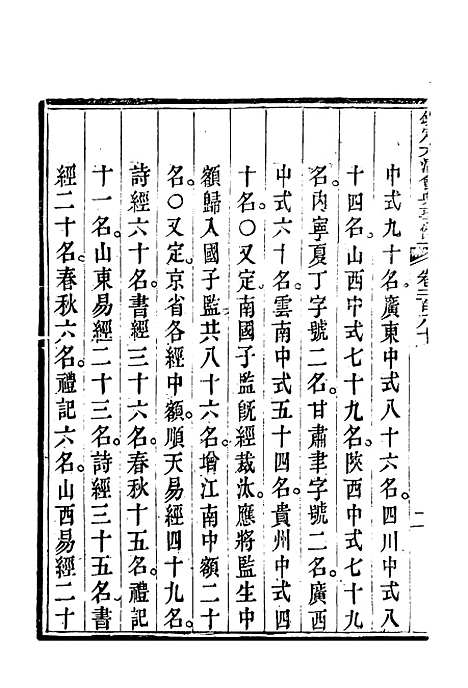 欽定大清會典事例
卷二百八十
中式九十名。廣東中式八十六名。四川中式八
十四名。山西中式七十九名。陝西中式七十九
名。內寧夏丁字號二名。甘肅聿字號二名。廣西
中式六十名。雲南中式五十四名。貴州中式四
十名。○又定。南國子監既經裁汰。應將監生中
額歸入國子監。共八十六名。增江南中額二十
名。○又定。京省各經中額。順天易經四十九名。
詩經六十名。書經三十六名。春秋十五名。禮記
十一名。山東易經二十三名。詩經三十五名。書
經二十名。春秋六名。禮記六名。山西易經二十